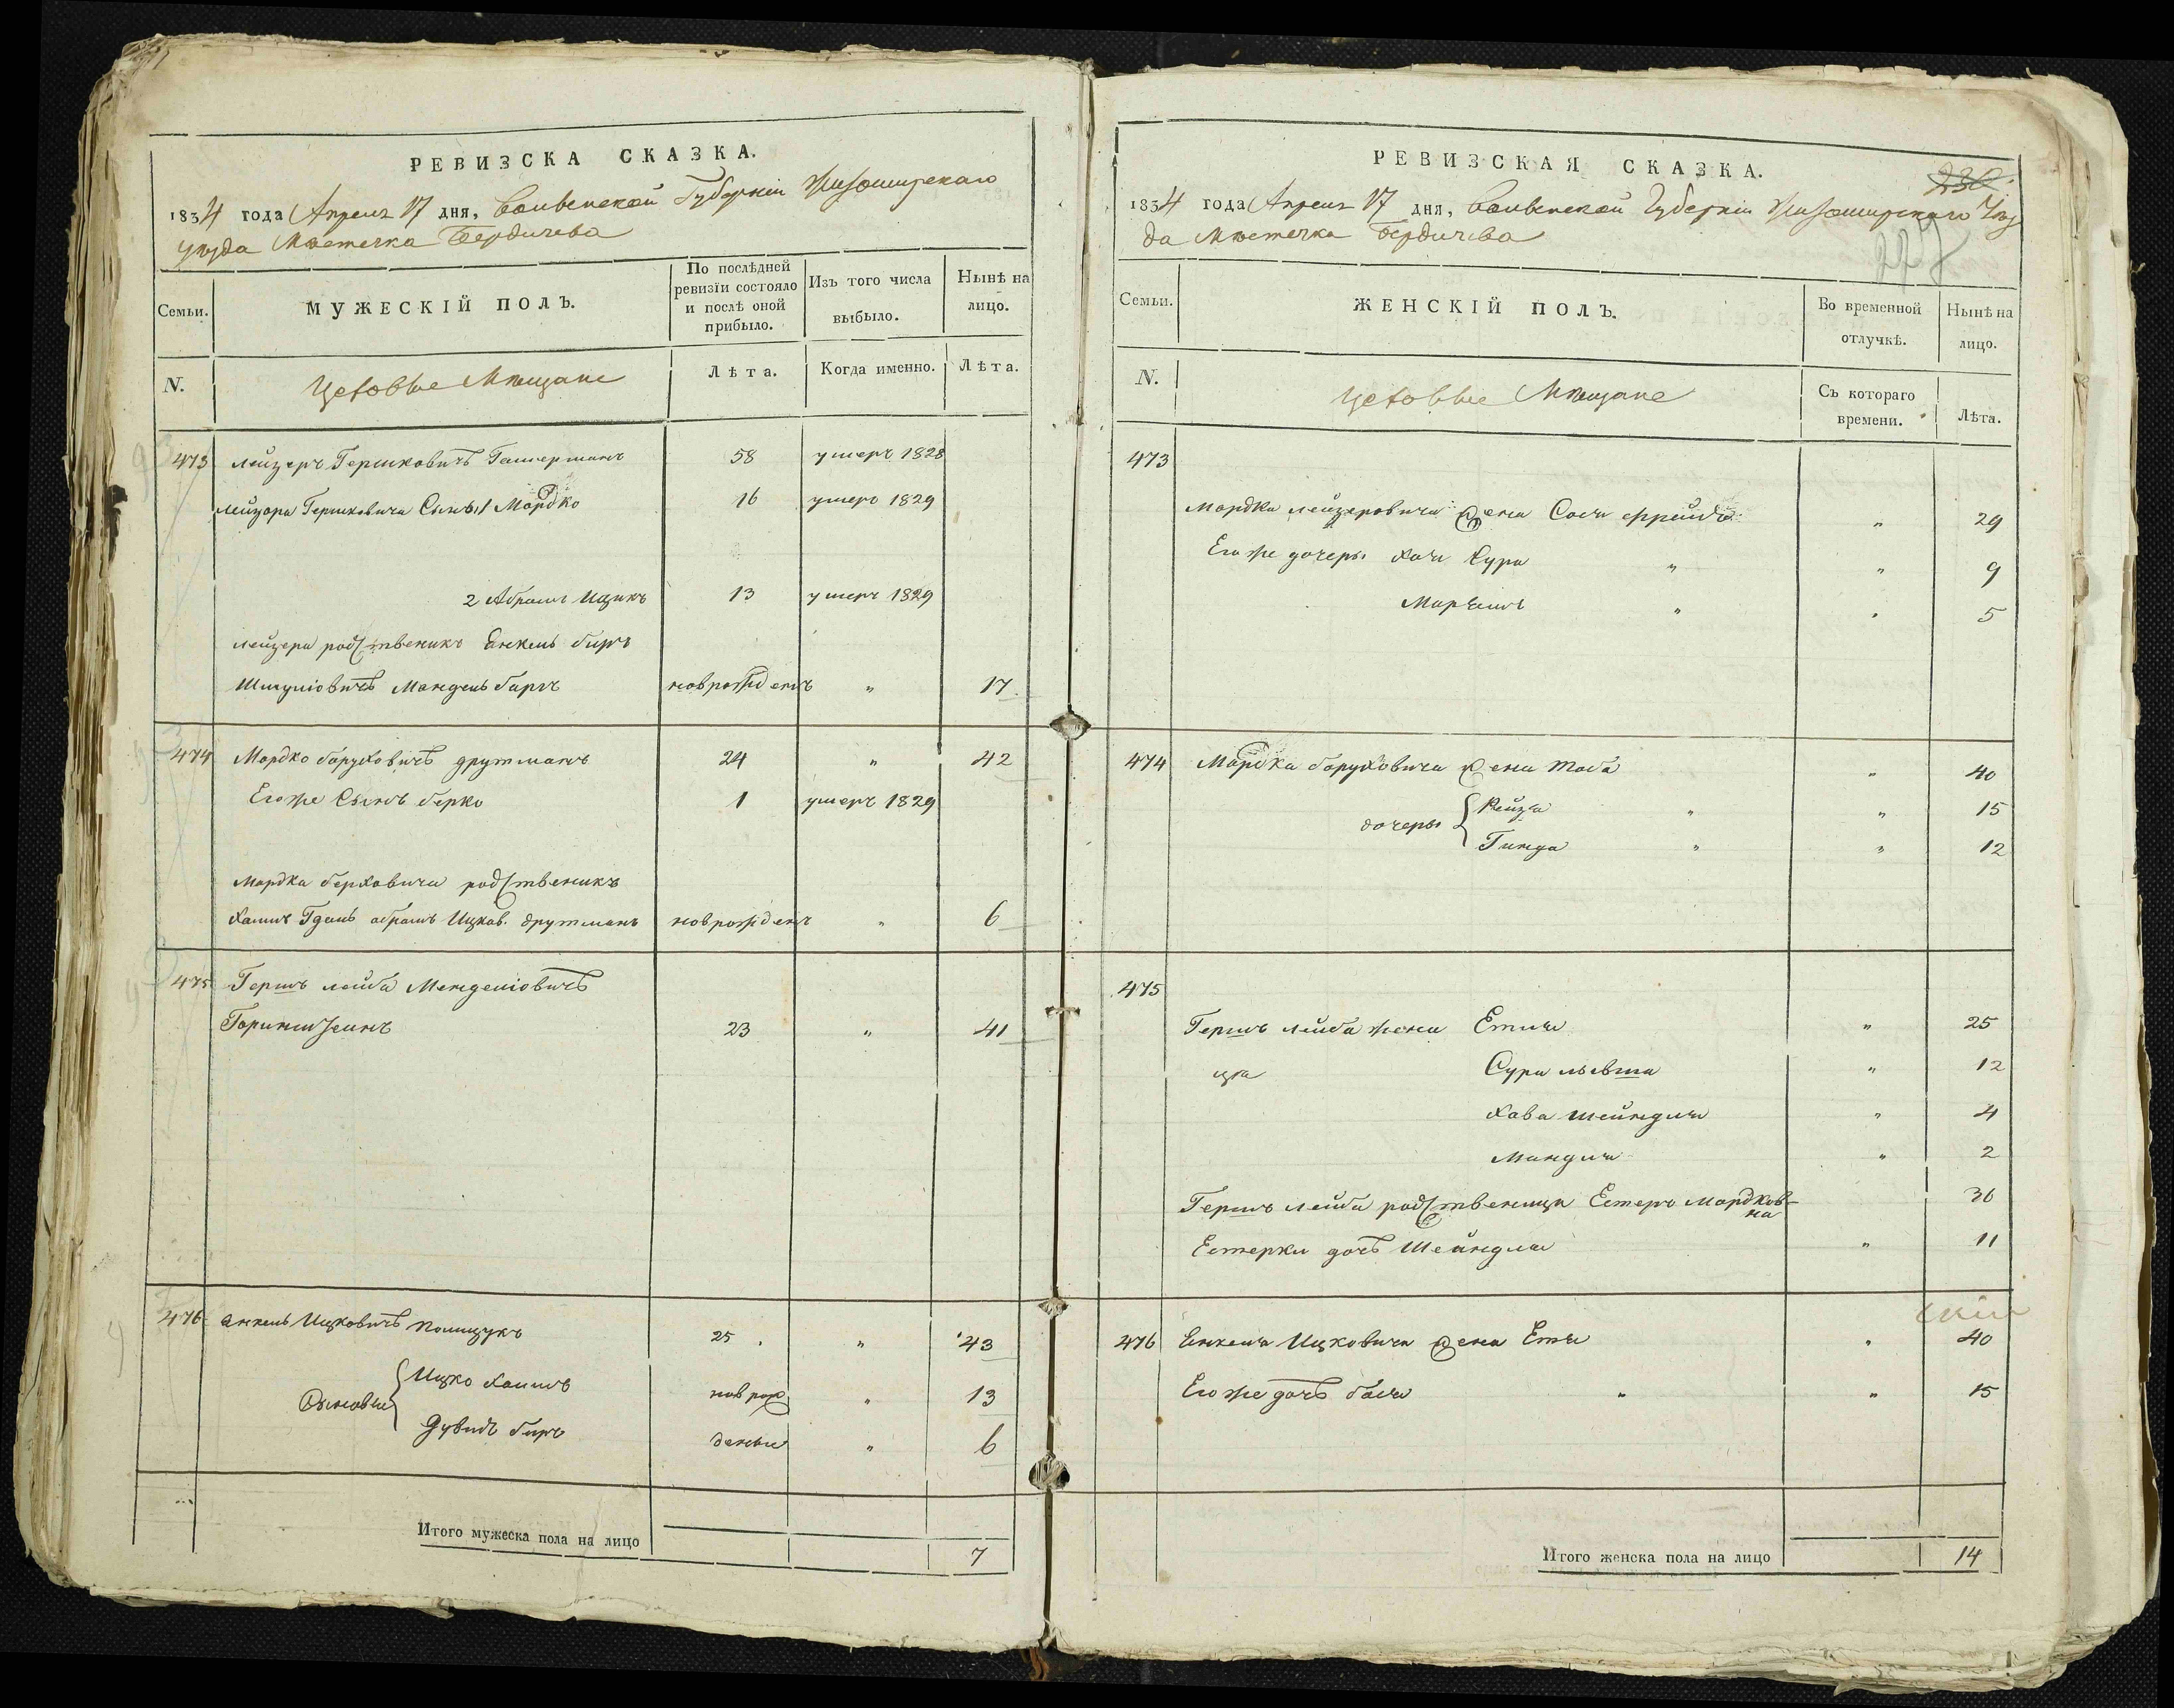 РЕВИЗСКА СКАЗКА.
1834 года Апреля 17 дня, Волынской Губерніи Житомирскаго
уезда Мѣстечка Бердичева
Семьи.
МУЖЕСКІЙ ПОЛЪ.
По послѣдней
ревизіи состояло
и послѣ оной
прибыло.
Изъ того числа
выбыло.
Нынѣ на
лицо.
N.
Цеховые Мещане
Лѣта.
Когда именно.
Лѣта.
473 Лейзеръ Гершковичъ 58 умеръ 1828
Лейзора Гершковича Сынъ 1 Мордко 16 умеръ 1829
2 Абрамъ Ицикъ 13 умеръ 1829
Лейзера родственикъ Янкель беръ
Шмуліовичъ новрожденъ „ 17
474 Мордко боруховичъ друтманъ 24 „ 42
Егоже Сынъ берко 1 умеръ 1829
Мордка берховича родственикъ
Хаимъ Гдаль абрамъ Ицков. друтманъ новрожденъ „ 6
475 Гершъ лейба Менделіовичъ
Горинштеинъ 23 „ 41
476 Янкель Ицковичъ Полищукъ 25 „ 43
Сыновья { Ицко Хаимъ новрож „ 13
Дувидъ беръ деные „ 6
Итого мужеска пола на лицо 7
РЕВИЗСКАЯ СКАЗКА.
230.
1834 года Апреля 17 дня, Волынской Губерніи Житомирскаго Уез
да Мѣстечка Бердичева
227
Семьи.
ЖЕНСКІЙ ПОЛЪ.
Во временной
отлучкѣ.
Нынѣ на
лицо.
N.
Цеховые Мещане
Съ котораго
времени.
Лѣта.
473
Мордка лейзеровича жена Сося Фрейда „ 29
Егоже дочеры Хая Сура „ „ 9
Маріемъ „ „ 5
474 Мордка боруховича жена Тоба „ 40
дочеры { Рейзя „ „ 15
Гинда „ „ 12
475
Гершъ лейба жена Етля „ 25
Сура „ 12
Хава шейндля „ 4
Миндля „ 2
Гершъ лейба родственица Естеръ Мордков-
на 36
Естерки дочъ Шейндля „ 11
476 Янкеля Ицковича жена Етя „ 40
Егоже дочъ бася „ „ 15
Итого женска пола на лицо 14